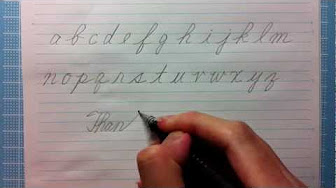 a b c d e f g h i j k l m
n o p q r s t u v w x y z
Than